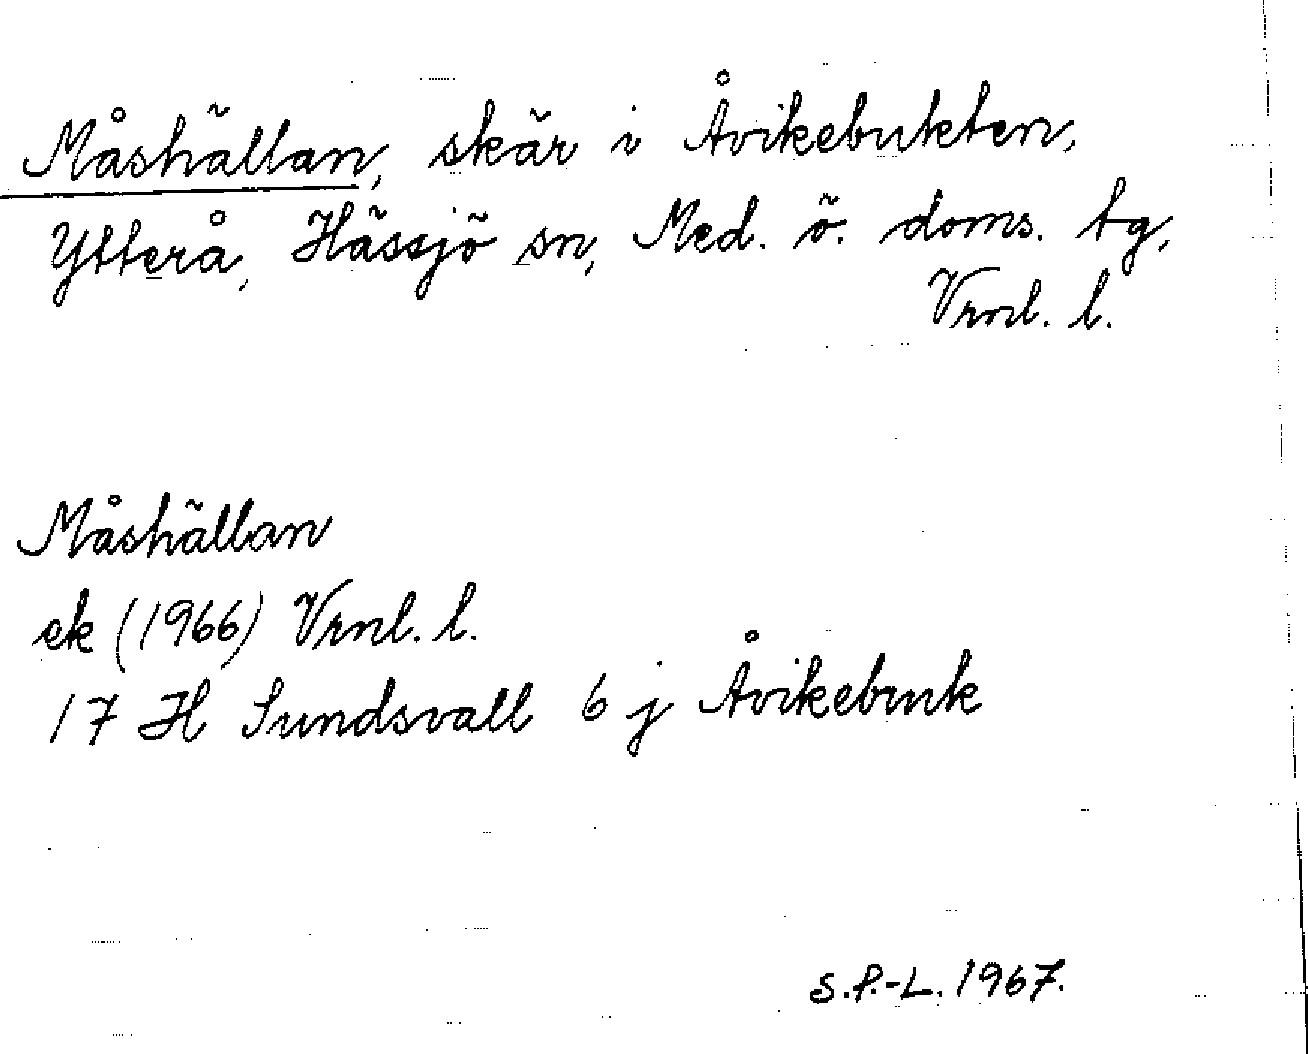 Måshällan, skär i Åvikebukten,
Ytterå, Hässjö sn, Med. ö. doms. tg,
Vrnl. l.
Måshällan
ek (1966) Vrnl. l.
17 H Sundsvall 6 j Åvikebruk
S.P.-L. 1967.